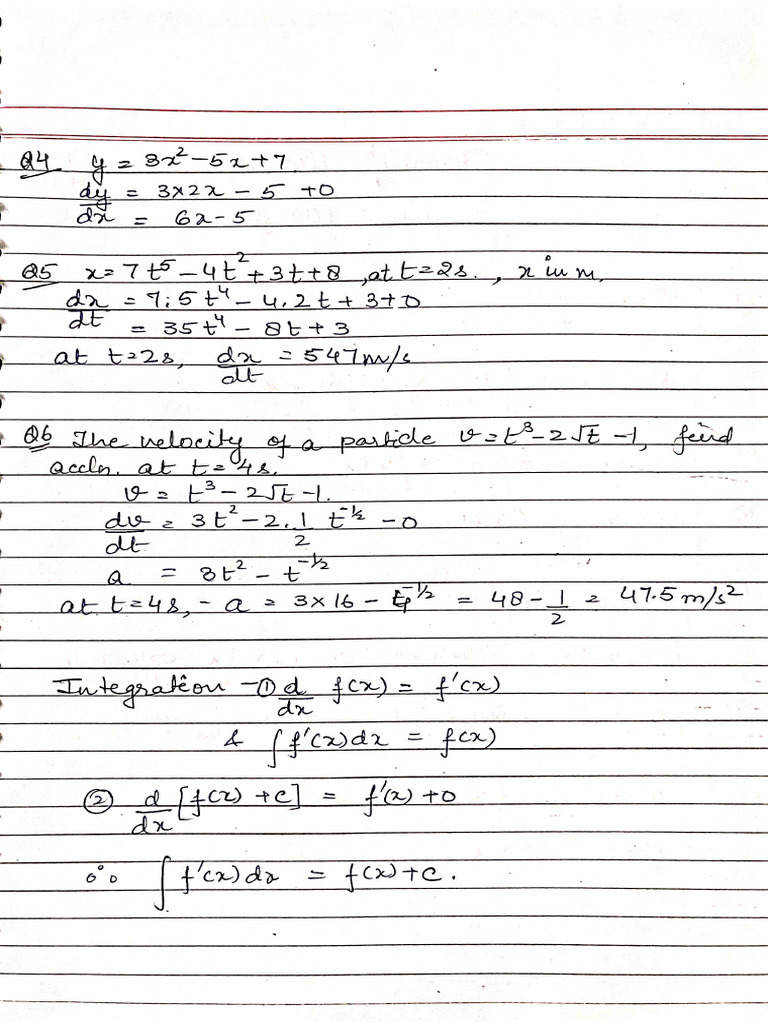 Q4 y = 3x² - 5x + 7
dy/dx = 3×2x - 5 + 0
= 6x - 5
Q5 x = 7t⁵ - 4t² + 3t + 8, at t = 2s., x in m.
dx/dt = 7.5t⁴ - 4.2t + 3 + 0
= 35t⁴ - 8t + 3
at t=2s, dx/dt = 547 m/s
Q6 The velocity of a particle v = t³ - 2√t - 1, find
accln. at t = 4s.
v = t³ - 2√t - 1.
dv/dt = 3t² - 2. 1/2 t^-1/2 - 0
a = 3t² - t^-1/2
at t = 4s, - a = 3×16 - 4^-1/2 = 48 - 1/2 = 47.5 m/s²
Integration - ① d/dx f(x) = f'(x)
& ∫f'(x)dx = f(x)
② d/dx [f(x) + c] = f'(x) + 0
∴ ∫f'(x)dx = f(x) + c.